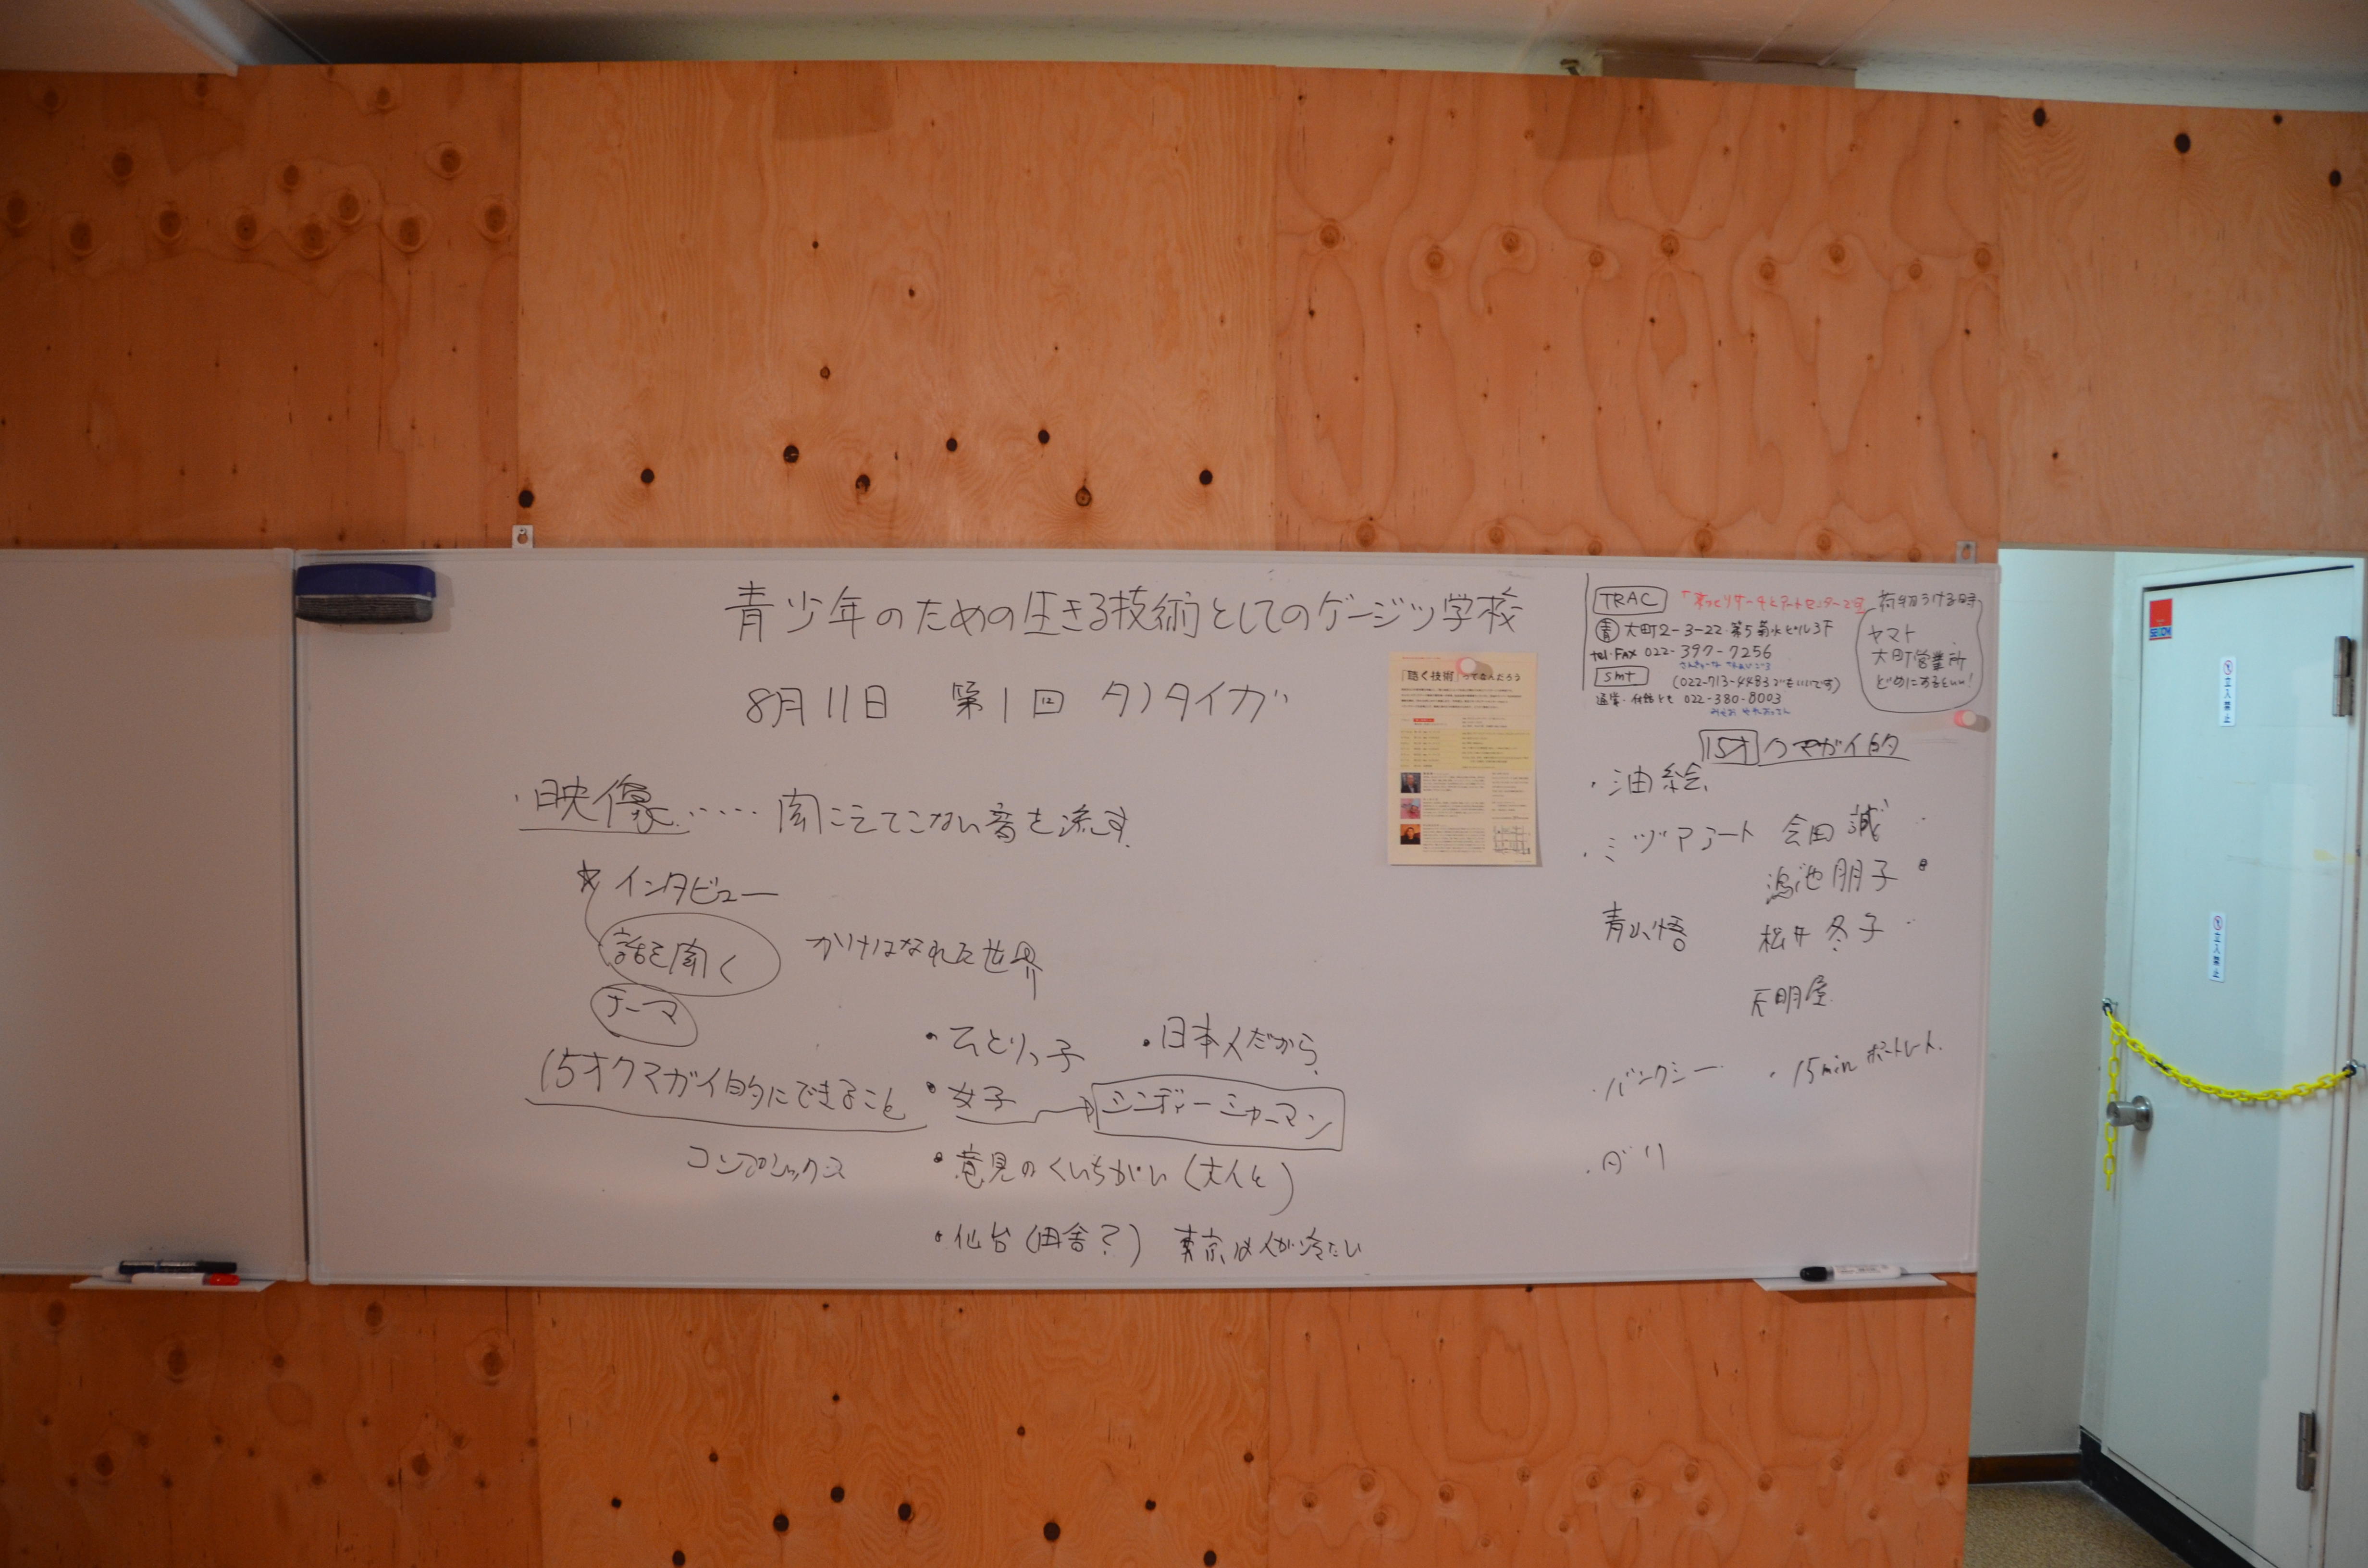 青少年のための生きる技術としてのゲージツ学校
8月11日 第1回 タノタイガ
・映像……聞こえてこない音を流す
☆インタビュー
話を聞く かけはなれた世界
テーマ
15才クマガイ的にできること
コンプレックス
・ひとりっ子 ・日本人だから
・女子 → シンディーシャーマン
・意見のくいちがい(大人と)
・仙台(田舎?) 東京は人が冷たい
「聴く技術」ってなんだろう
TRAC
大町2-3-22 第5菊水ビル3F
tel・FAX 022-397-7256
smt (022-713-4483でもいいです)
022-380-8003
荷物うける時
ヤマト
大町営業所
どめにするといい!
15才クマガイ的
・油絵
・ミヅマアート 会田誠
鴻池朋子
青山悟 松井冬子
天明屋
・バンクシー ・15minポートレート
・ダリ
SECOM
立入禁止
立入禁止